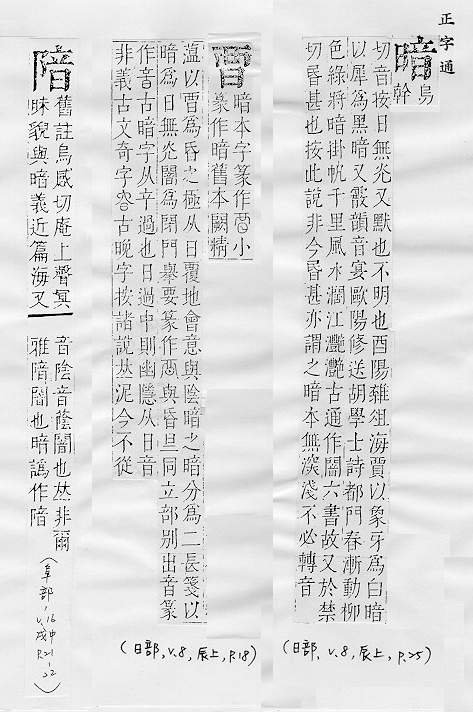 正字通
暗
烏
幹
切音按日無光又默也不明也酉陽雜俎海賈以象牙爲白暗
以犀爲黑暗又霰韻音宴歐陽修送胡學士詩都門春漸動柳
色綠將暗掛帆千里風水濶江灔灔古通作闇六書故又於禁
切昏甚也按此說非今昏甚亦謂之暗本無湥淺不必轉音
(日部, v.8, 辰上, p.25)
暗本字篆作小
篆作暗舊本闕精
薀以爲昏之極从日覆地會意與陰暗之暗分爲二長箋以
暗爲日無光闇爲閉門舉要篆作與昏旦同立部别出音篆
作古暗字从辛過也日過中則幽隱从日音
非義古文奇字古晚字按諸說𠀤泥今不從
(日部, v.8, 辰上, p.18)
隌
舊註烏感切庵上聲冥
貌與暗義近篇海又
音陰音蔭闇也𠀤非爾
雅隌闇也暗譌作隌
(阜部, v.16 戌中 P.21-22)